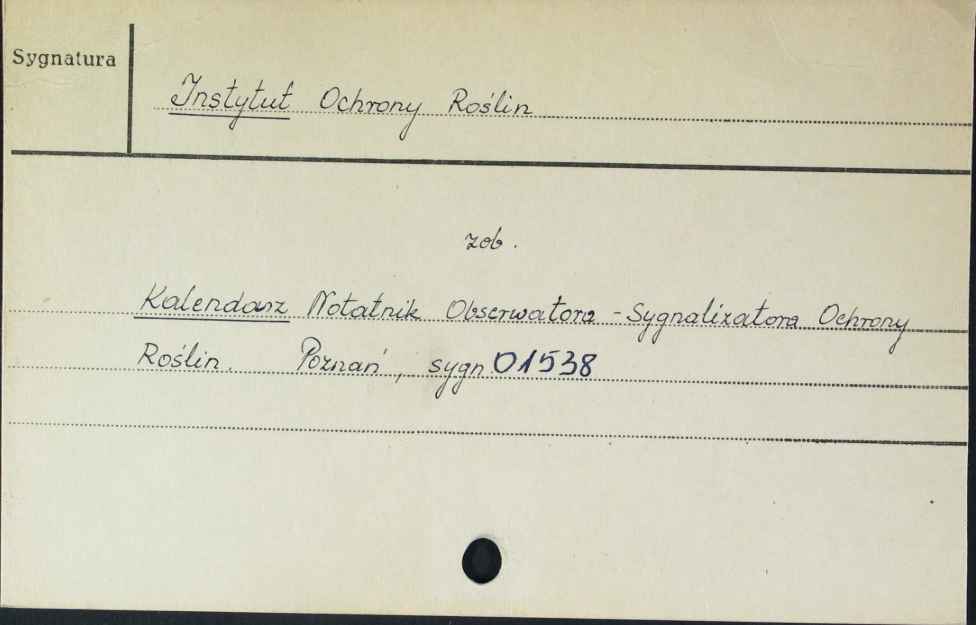 Sygnatura
Instytut Ochrony Roślin
zob.
Kalendarz Notatnik Obserwatora - Sygnalizatora Ochrony
Roślin. Poznań, sygn 01538